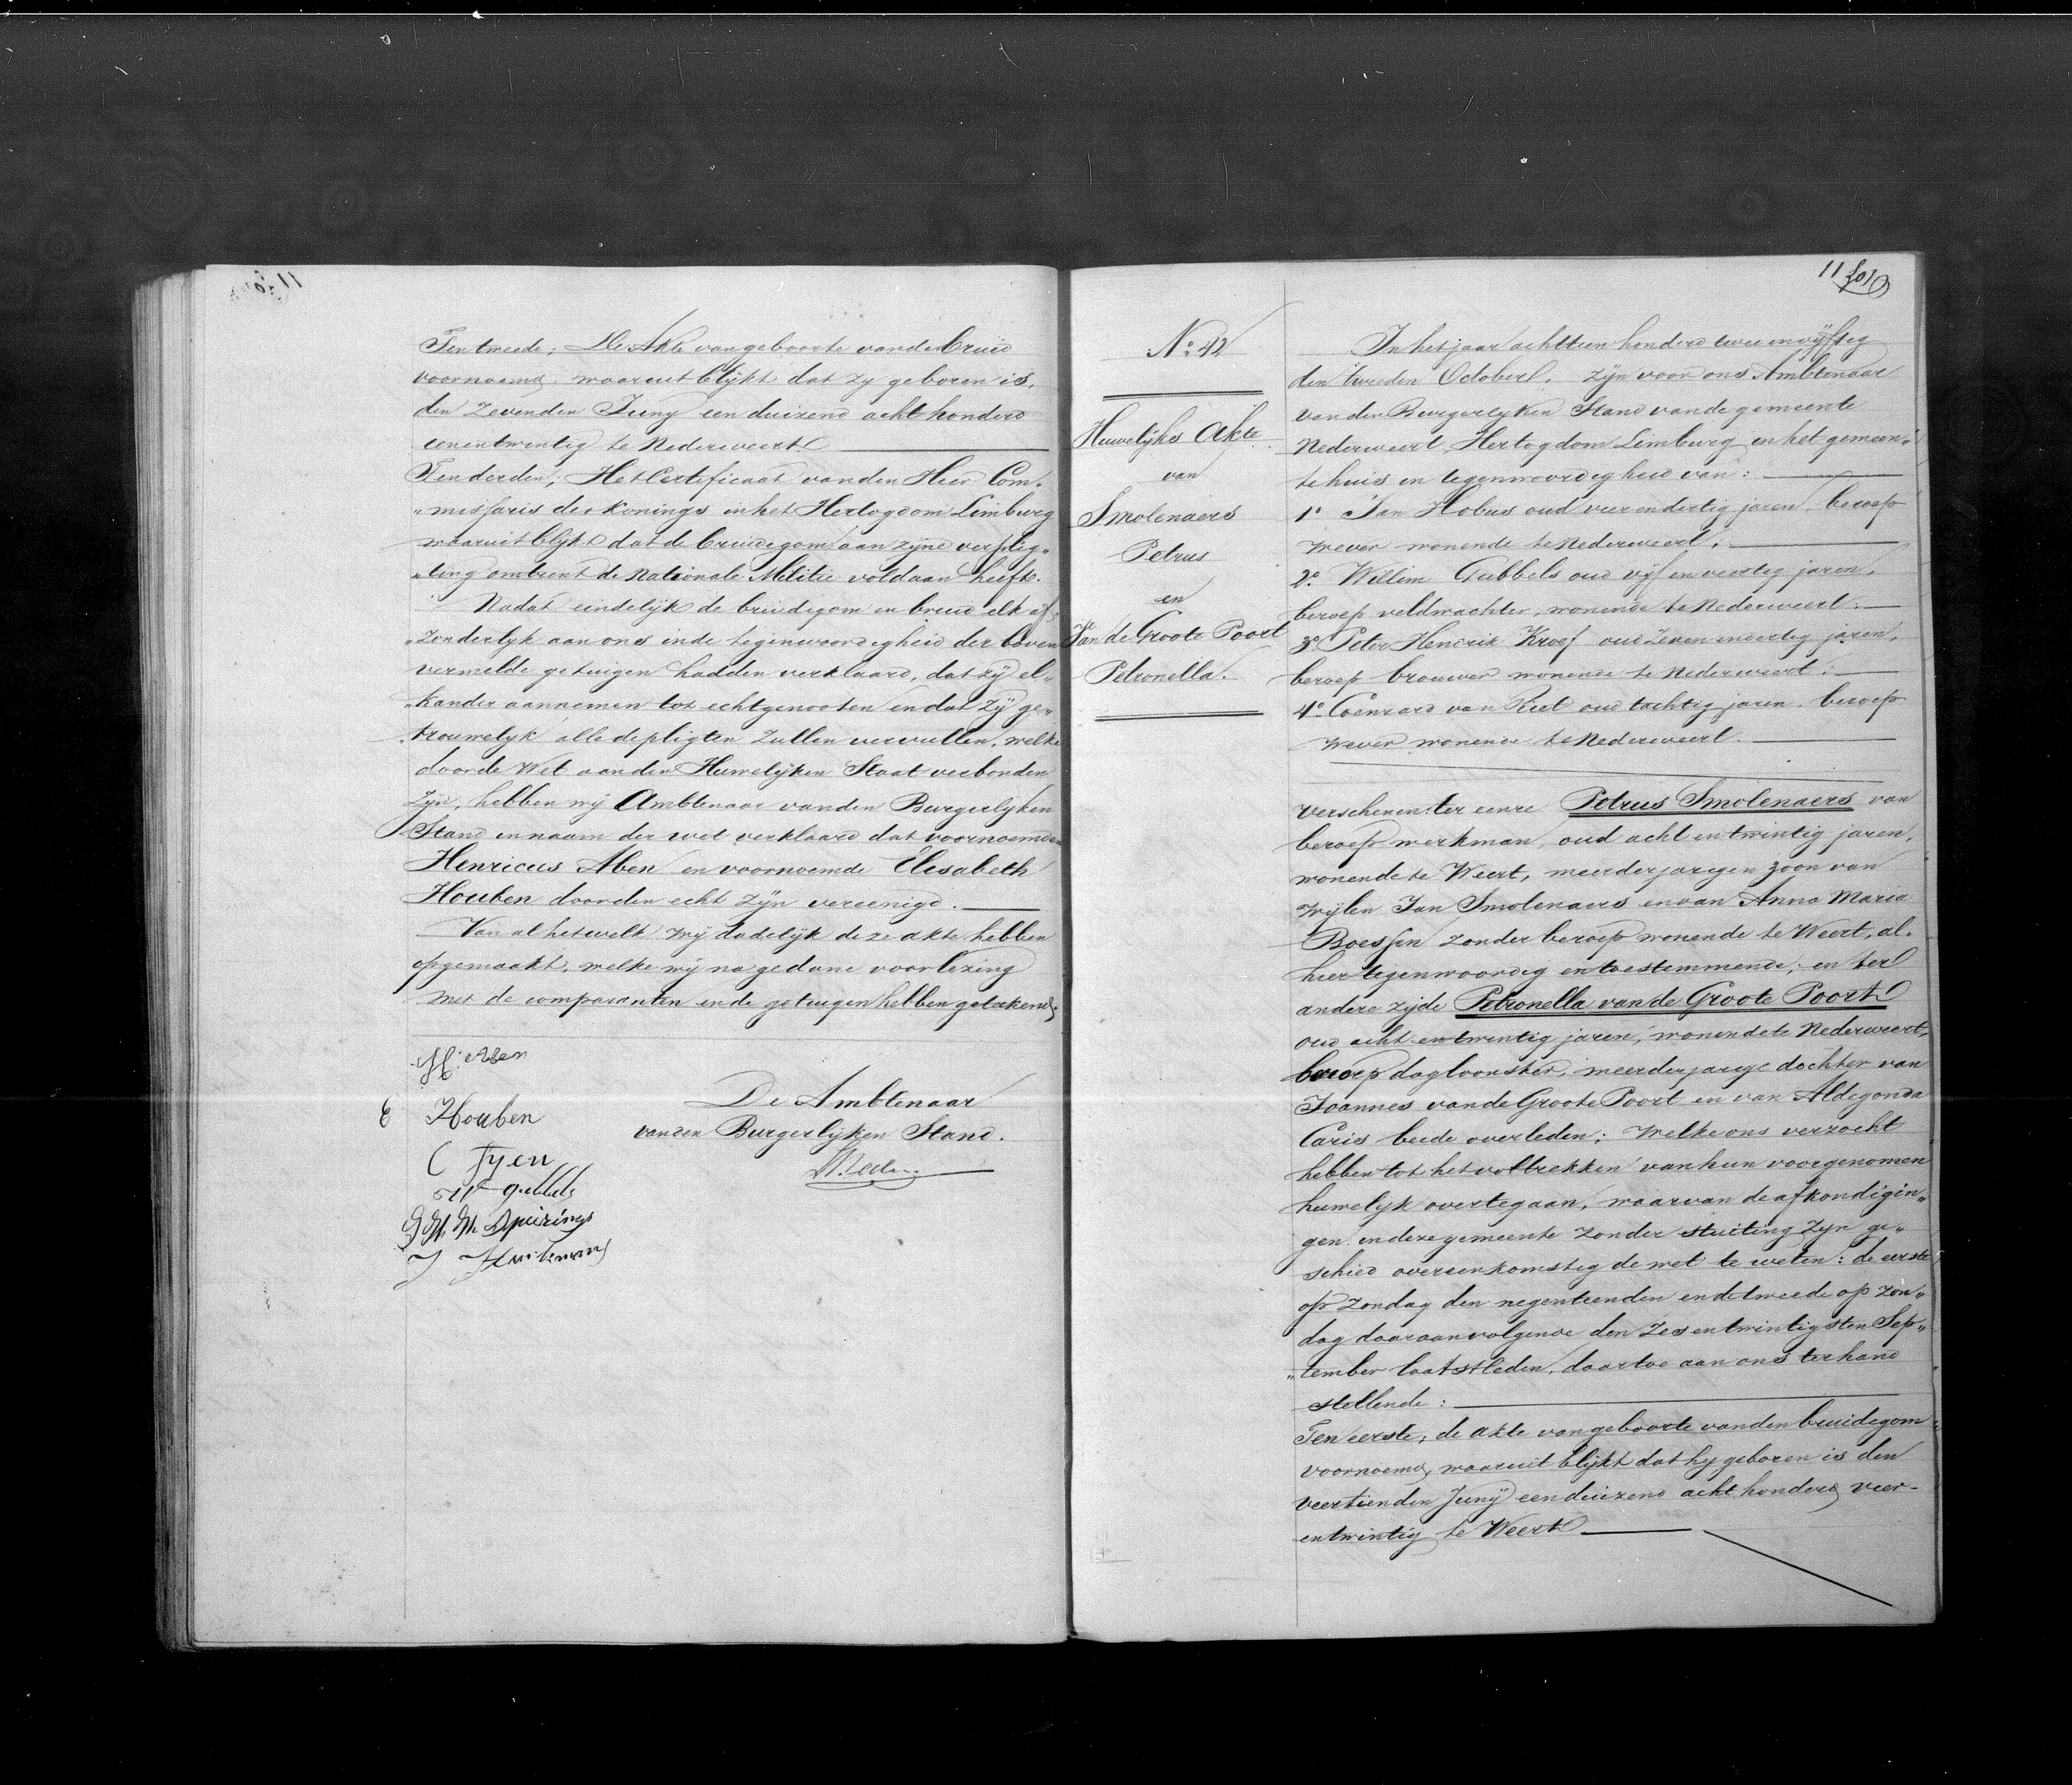 Ten tweede; De Akte van geboorte van de bruid
voornoemd, waaruit blijkt dat zy geboren is,
den zevenden Juny een duizend acht honderd
eenentwintig te Nederweert.
Ten derden; Het Certificaat van den Heer Com„
„missaris des Konings in het Hertogdom Limburg
waaruit blijkt dat de bruidegom aan zyne verplig„
„ting omtrent de Nationale Militie voldaan heeft.
Nadat eindelijk de bruidegom en bruid elk af„
„zonderlyk aan ons in de tegenwoordigheid der boven
vermelde getuigen hadden verklaard, dat zy el„
„kander aannemen tot echtgenooten en dat zy ge„
„trouwelyk alle de pligten zullen vervullen, welke
door de Wet aan den Huwelyken Staat verbonden
zyn, hebben wy Ambtenaar van den Burgerlyken
Stand in naam der wet verklaard dat voornoemden
Henricus Aben en voornoemde Elisabeth
Houben door den echt zyn vereenigd.
Van al hetwelk wy dadelyk deze akte hebben
opgemaakt, welke wy na gedane voorlezing
met de comparanten en de getuigen hebben getekend.
H. Aben
E Houben
C Fyen
W gubbels
De Ambtenaar
van den Burgerlyken Stand.
11
101
N.º 42
Huwelijks Akte
van
Smolenaers
Petrus
en
Van de Groote Poort
Petronella.
In het jaar achttien honderd twee en vyftig
den tweeden October, zyn voor ons Ambtenaar
van den Burgerlyken Stand van de gemeente
Nederweert, Hertogdom Limburg in het gemeen„
te huis in tegenwoordigheid van:
1º Jan Hobus oud vier en dertig jaren, beroep
wever wonende te Nederweert;
2º Willem Gubbels oud vyf en veertig jaren,
beroep veldwachter, wonende te Nederweert;
3º Peter Hendrik Kroef oud zeven en dertig jaren,
beroep brouwer wonende te Nederweert;
4º Coenraad van Riet oud tachtig jaren, beroep
wever wonende te Nederweert.
verschenen: ter eenre Petrus Smolenaers van
beroep werkman, oud acht en twintig jaren,
wonende te Weert, meerderjarigen zoon van
wylen Jan Smolenaers en van Anna Maria
Boessen zonder beroep wonende te Weert, al„
hier tegenwoordig en toestemmende; en ter
andere zyde Petronella van de Groote Poort
oud acht en twintig jaren, wonende te Nederweert,
beroep dagloonster, meerderjarige dochter van
Joannes van de Groote Poort en van Aldegonda
Caris beide overleden; welke ons verzocht
hebben tot het voltrekken van hun voorgenomen
huwelyk overtegaan, waarvan de afkondigin„
gen in deze gemeente zonder stuiting zyn ge„
schied overeenkomstig de wet te weten: de eerste
op zondag den negentienden en de tweede op zon„
dag daaraanvolgende den zesentwintigsten Sep„
„tember laatstleden, daartoe aan ons ter hand
stellende:
Ten eerste; de akte van geboorte van den bruidegom
voornoemd, waaruit blykt dat hy geboren is den
veertienden Juny een duizend acht honderd vier-
entwintig te Weert